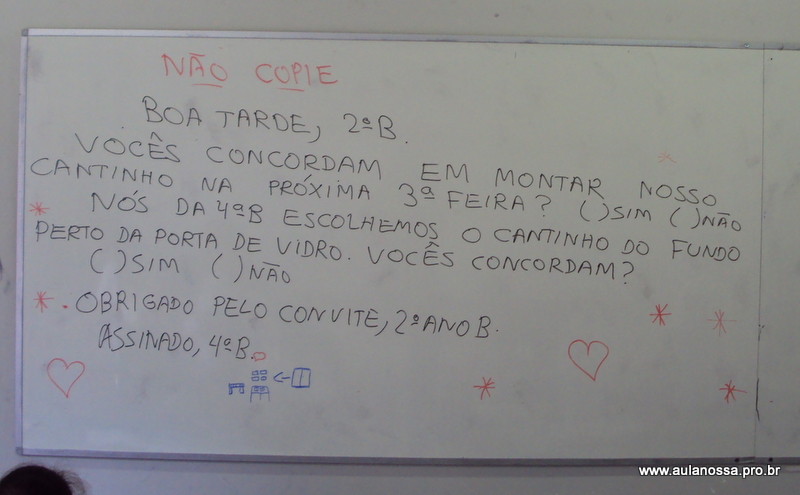 NÃO COPIE
BOA TARDE, 2ºB.
VOCÊS CONCORDAM EM MONTAR NOSSO
CANTINHO NA PRÓXIMA 3ª FEIRA? ( )SIM ( )NÃO
NÓS DA 4ªB ESCOLHEMOS O CANTINHO DO FUNDO
PERTO DA PORTA DE VIDRO. VOCÊS CONCORDAM?
( )SIM ( )NÃO
. OBRIGADO PELO CONVITE, 2º ANO B.
ASSINADO, 4ºB.
www.aulanossa.pro.br